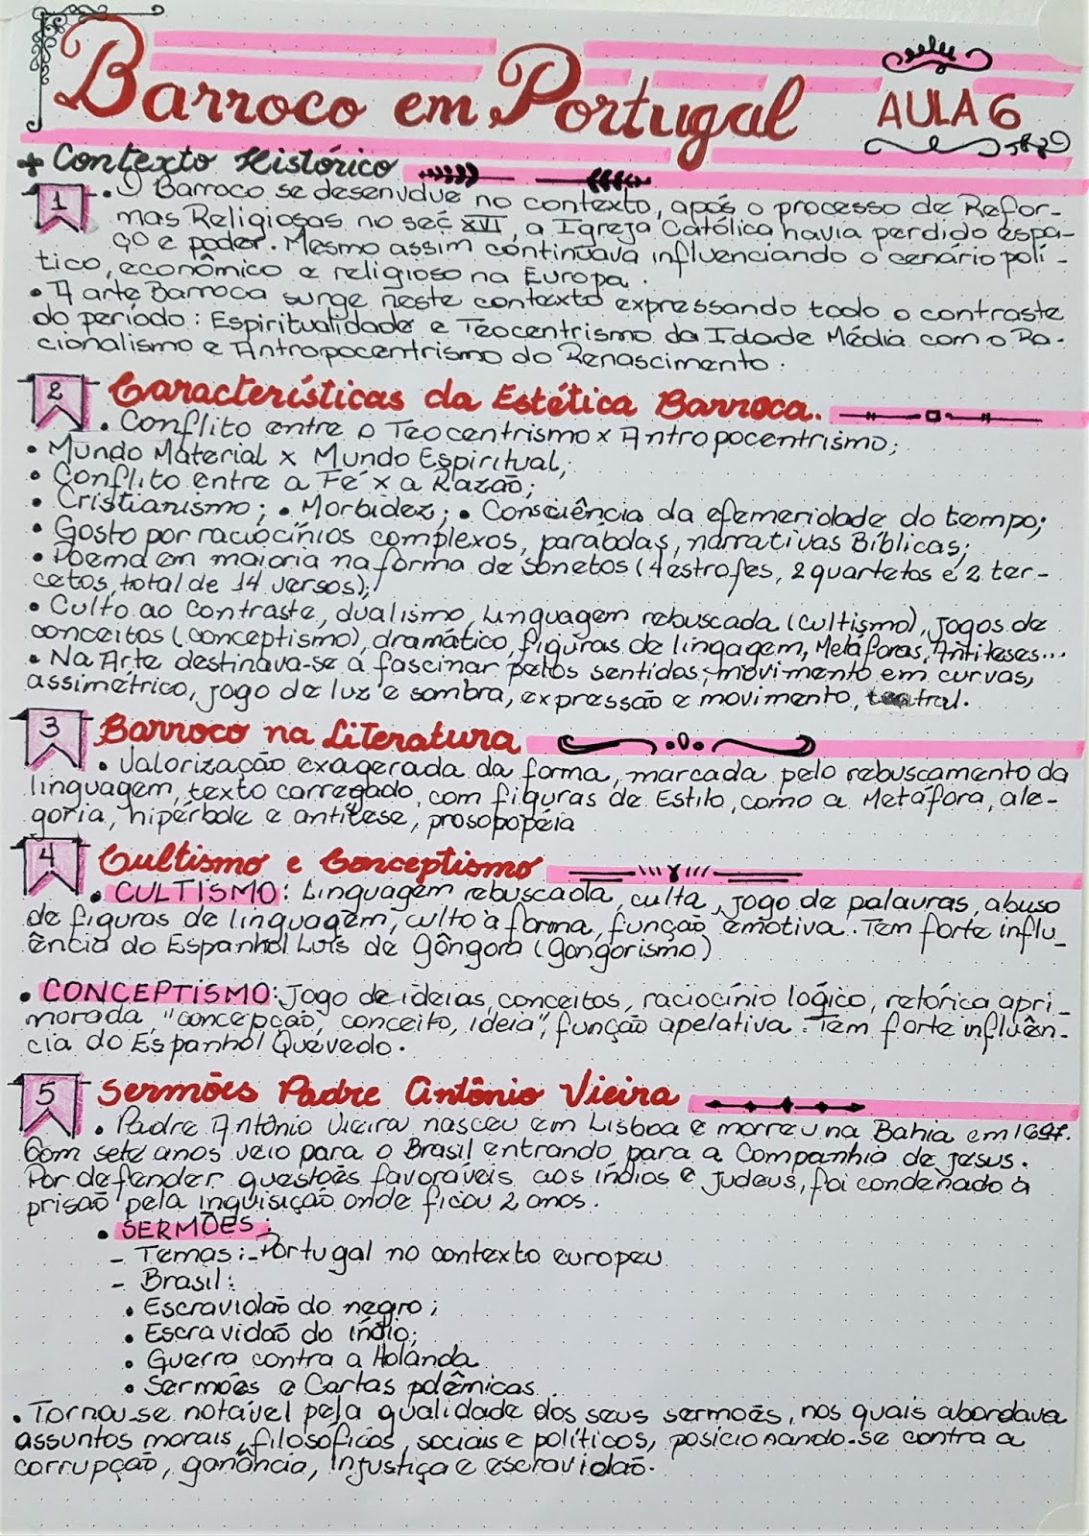 Barroco em Portugal
AULA 6
+ Contexto Histórico
1 • O Barroco se desenvolve no contexto, após o processo de Refor-
mas Religiosas no sec XVI, a Igreja Católica havia perdido espa-
ço e poder. Mesmo assim continuava influenciando o cenário polí-
tico, econômico e religioso na Europa.
• A arte Barroca surge neste contexto expressando todo o contraste
do período: Espiritualidade e Teocentrismo da Idade Média com o Ra-
cionalismo e Antropocentrismo do Renascimento.
2 Características da Estética Barroca.
• Conflito entre o Teocentrismo x Antropocentrismo;
• Mundo Material x Mundo Espiritual;
• Conflito entre a Fé x a Razão;
• Cristianismo; • Morbidez; • Consciência da efemeridade do tempo;
• Gosto por raciocínios complexos, parábolas, narrativas Bíblicas;
• Poema em maioria na forma de sonetos (4 estrofes, 2 quartetos e 2 ter-
cetos, total de 14 versos);
• Culto ao contraste, dualismo, linguagem rebuscada (cultismo), jogos de
conceitos (conceptismo), dramático, figuras de lingagem, Metáforas, Antíteses...
• Na Arte destinava-se a fascinar pelos sentidos; movimento em curvas,
assimétrico, jogo de luz e sombra, expressão e movimento, teatral.
3 Barroco na Literatura
• Valorização exagerada da forma, marcada pelo rebuscamento da
linguagem, texto carregado, com figuras de Estilo, como a Metáfora, ale-
goria, hipérbole e antítese, prosopopéia
4 Cultismo e Conceptismo
• CULTISMO: Linguagem rebuscada, culta, jogo de palavras, abuso
de figuras de linguagem, culto à forma, função emotiva. Tem forte influ_
ência do Espanhol Luís de Gôngora (gongorismo)
• CONCEPTISMO: Jogo de ideias, conceitos, raciocínio lógico, retórica apri_
morada, "concepção, conceito, ideia", função apelativa. Tem forte influên-
cia do Espanhol Quevedo.
5 Sermões Padre Antônio Vieira
• Padre Antônio Vieira nasceu em Lisboa e morreu na Bahia em 1697.
Com sete anos veio para o Brasil entrando para a Companhia de Jesus.
Por defender questões favoráveis aos índios e judeus, foi condenado à
prisão pela inquisição onde ficou 2 anos.
• SERMÕES:
- Temas: - Portugal no contexto europeu
- Brasil:
• Escravidão do negro;
• Escravidão do índio;
• Guerra contra a Holanda
• Sermões e Cartas polêmicas.
• Tornou-se notável pela qualidade dos seus sermões, nos quais abordava
assuntos morais, filosóficos, sociais e políticos, posicionando-se contra a
corrupção, ganância, injustiça e escravidão.